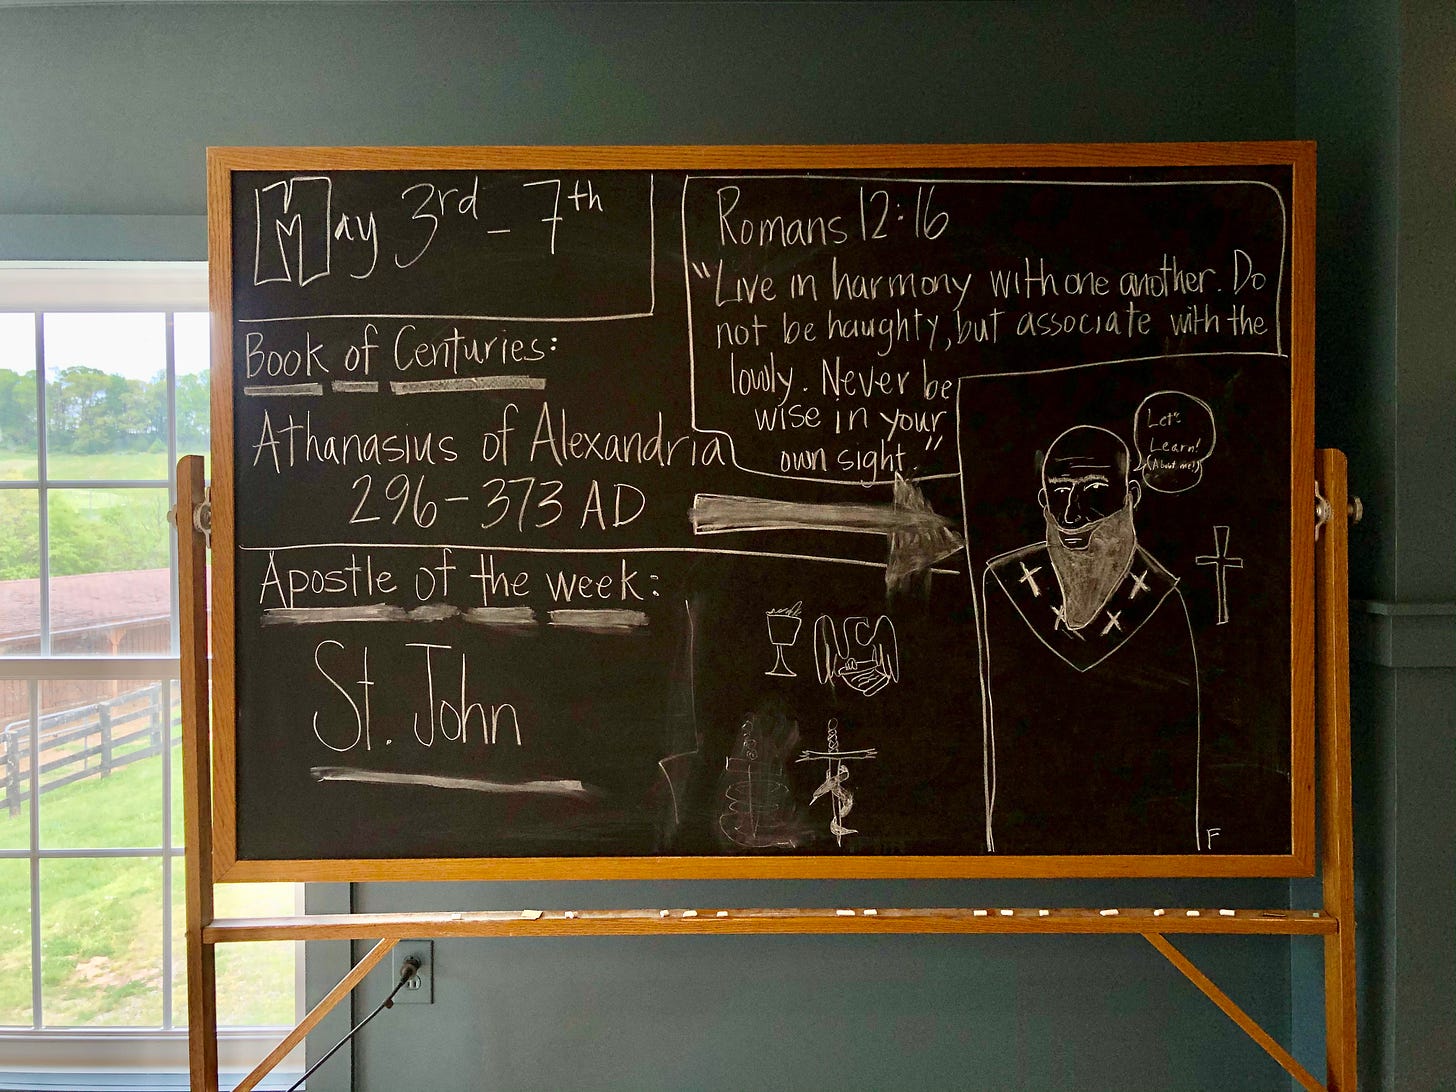 May 3rd - 7th
Book of Centuries:
Athanasius of Alexandria
296 - 373 AD
Apostle of the week:
St. John
Romans 12:16
"Live in harmony with one another. Do
not be haughty, but associate with the
lowly. Never be
wise in your
own sight."
Let's
Learn!
(About me!)
F